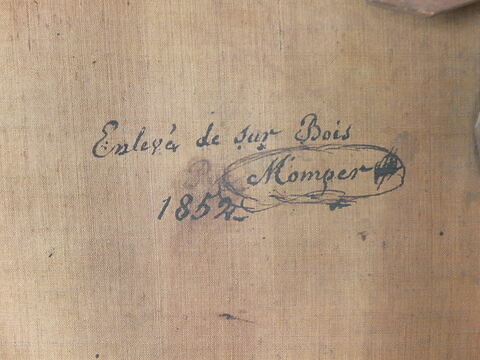 Enlevé de sur Bois
Momper
1852